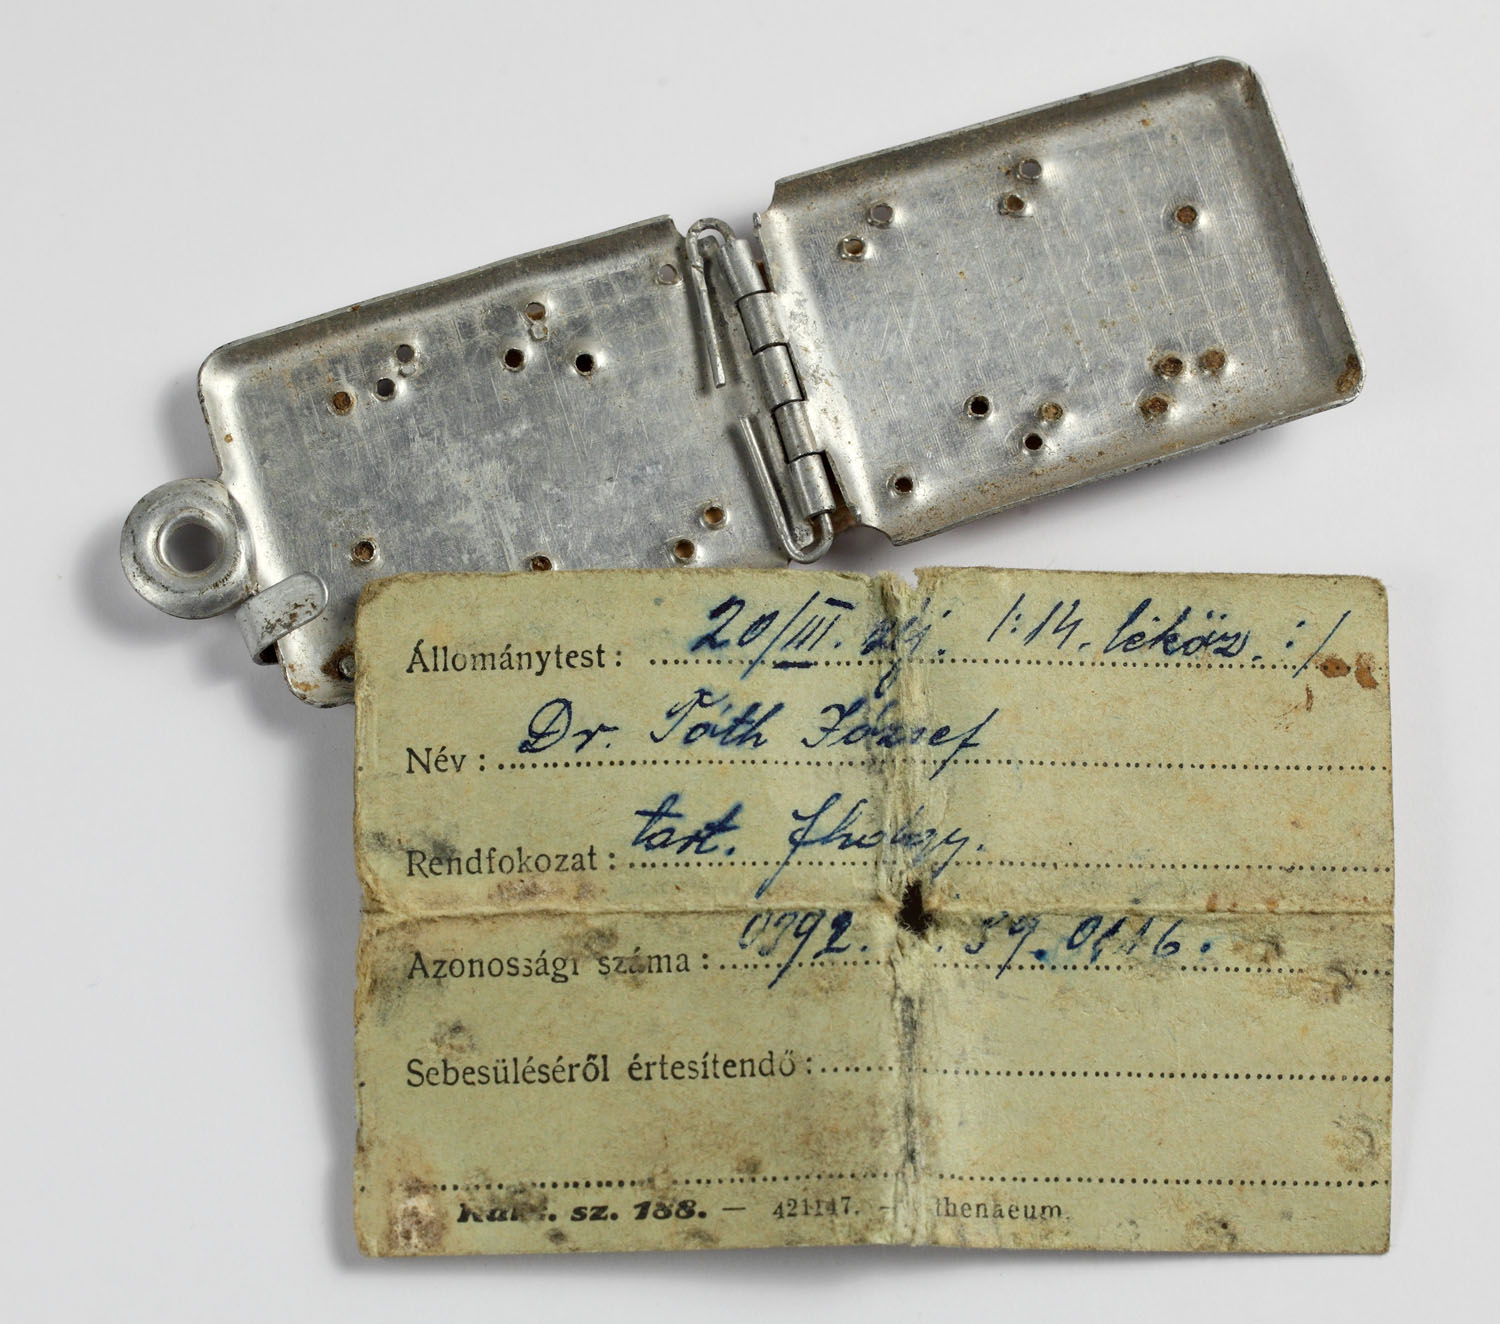 Állománytest: 20/III. 1:14. léköz. :/
Név: Dr. Tóth József
Rendfokozat: tart. fhdgy.
Azonossági száma: 59.
Sebesüléséről értesítendő:
sz. 188. — 421147. —